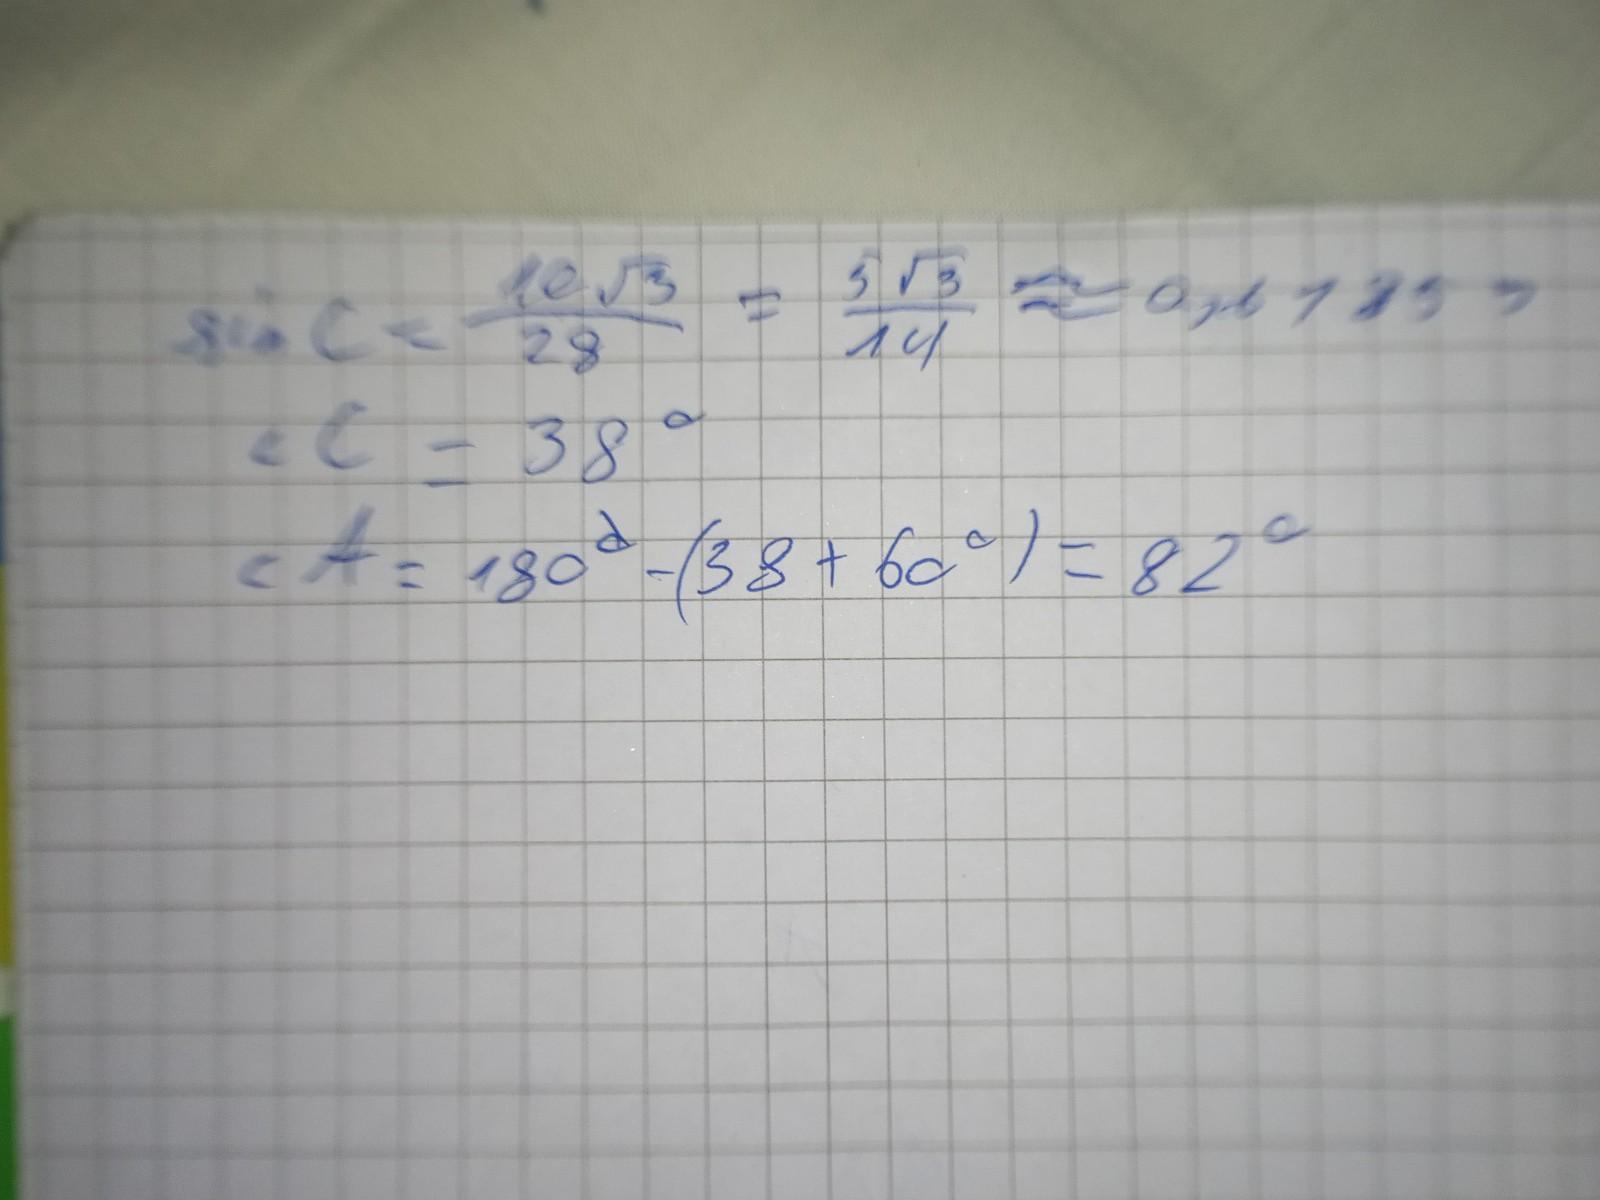 sin C = 10√3/28 = 5√3/14 ≈
< C = 38°
< A = 180° - (38 + 60°) = 82°